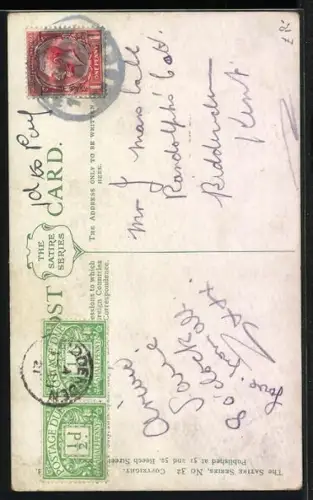 1d to Pay
POST CARD.
THE
SATIRE
SERIES
THE ADDRESS ONLY TO BE WRITTEN
HERE.
to which
Foreign Countries
Correspondence.
ONE PENNY
Mr J
Randolphs Cott
Biddenden
Kent
8 o'clock
Love from
XXX
POSTAGE DUE
½D
POSTAGE DUE
½D
THE SATIRE SERIES, No 32 COPYRIGHT.
Published at 51 and 52, Beech Street